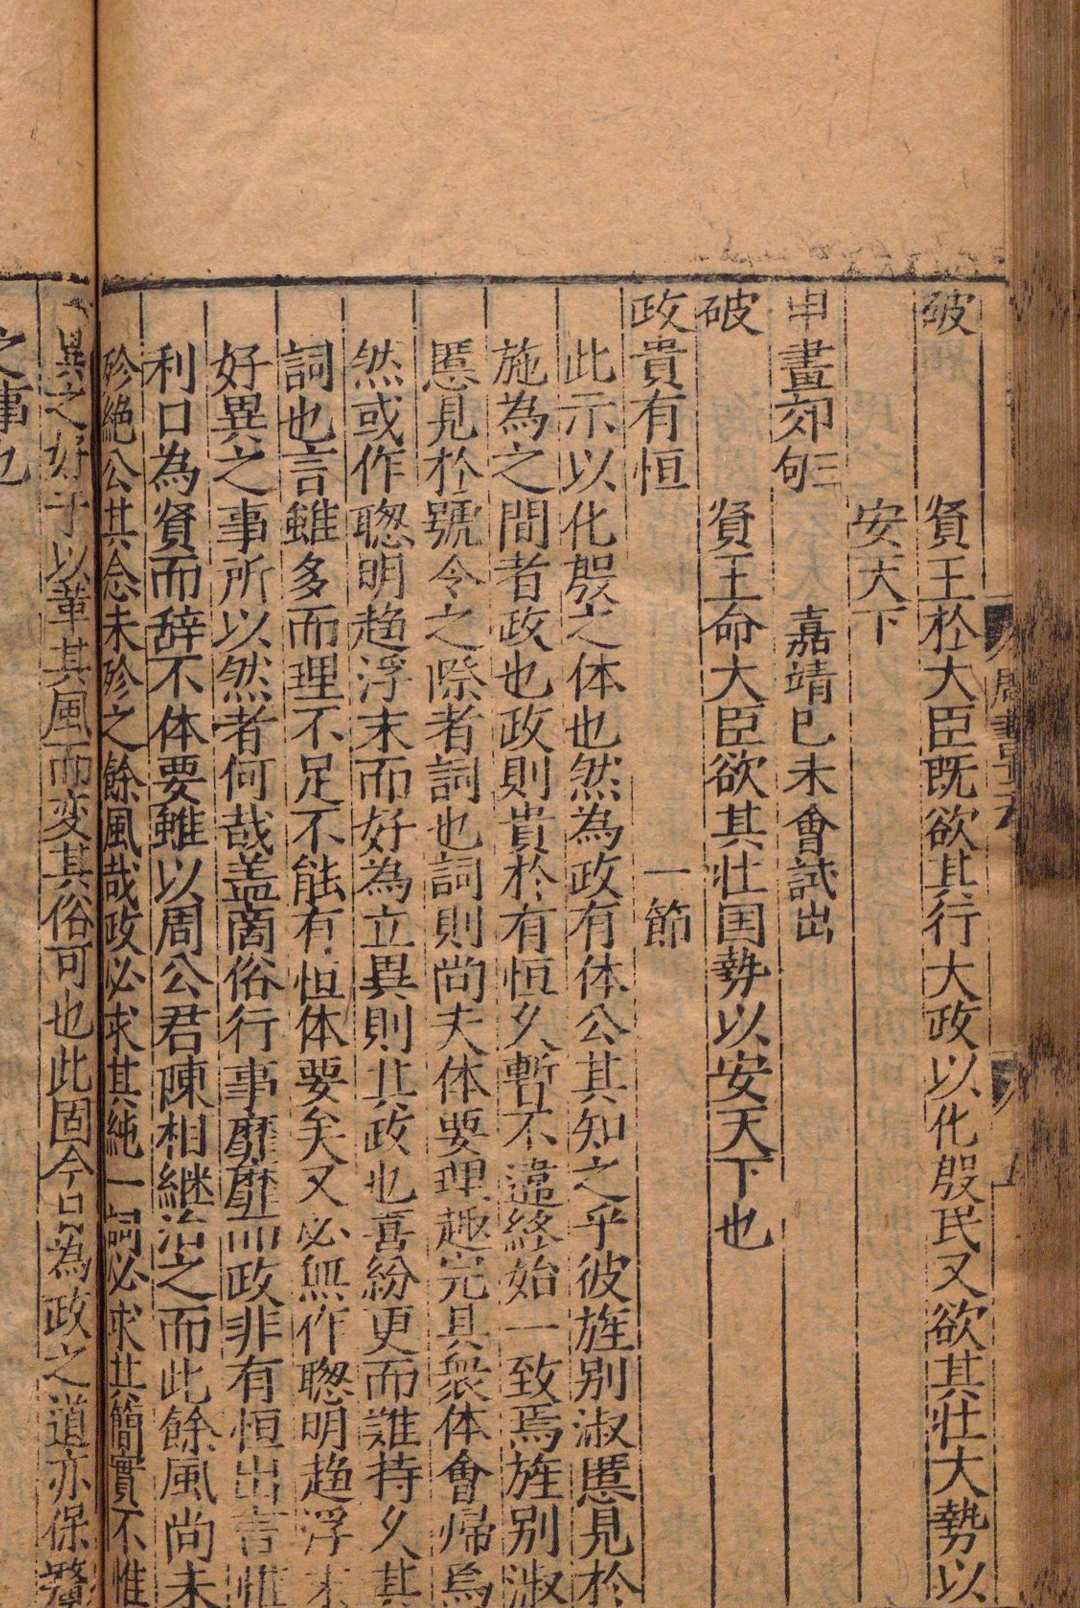 破　賢王於大臣既欲其行大政以化殷民又欲其壮大勢以
安天下
申畫郊三句　嘉靖己未會試出
破　賢王命大臣欲其壮囯勢以安天下也
政貴有恒　一節
此示以化殷之体也然為政有体公其知之乎彼旌别淑慝見於
施為之間者政也政則貴於有恒久暫不違終始一致焉旌别淑
慝見於號令之際者詞也詞則尚夫体要理趣完具衆体會歸焉
然或作聦明趋浮末而好為立異則其政也喜紛更而難持久其
詞也言雖多而理不足不能有恒体要矣又必無作聦明趋浮末
好異之事所以然者何哉盖商俗行事靡靡而政非有恒出言惟
利口為賢而辞不体要雖以周公君陳相継治之而此餘風尚未
殄絶公其念未殄之餘風哉政必求其純一詞必求其簡實不惟
異之好于以革其風而変其俗可也此固今日為政之道亦保釐
之事也
周書